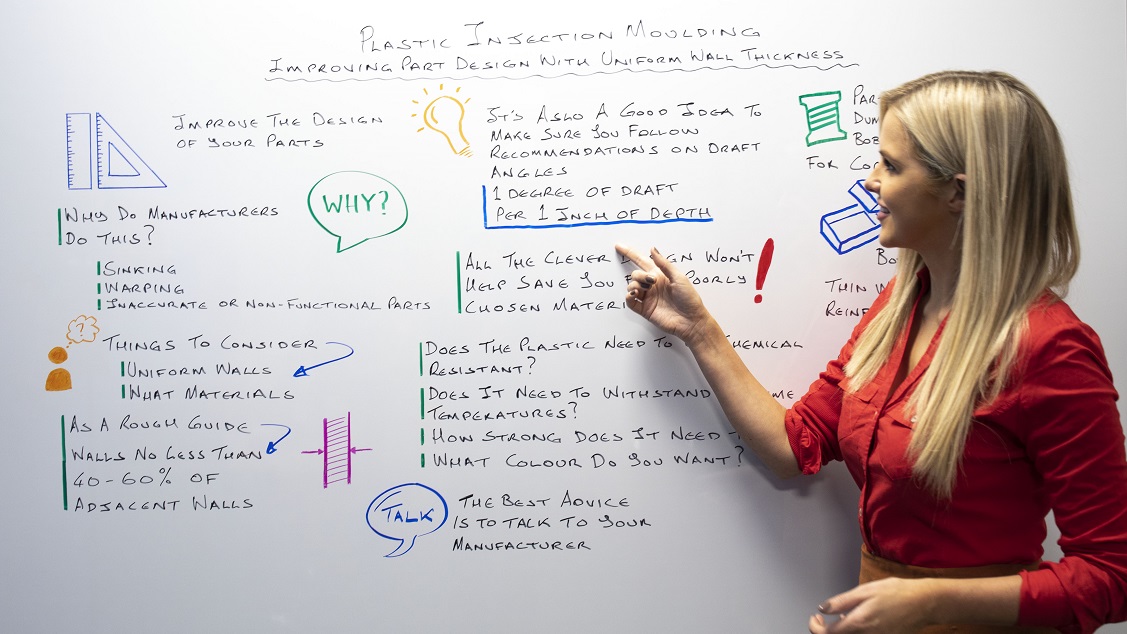 PLASTIC INJECTION MOULDING
IMPROVING PART DESIGN WITH UNIFORM WALL THICKNESS
IMPROVE THE DESIGN
OF YOUR PARTS
WHY DO MANUFACTURERS
DO THIS?
SINKING
WARPING
INACCURATE OR NON-FUNCTIONAL PARTS
?
THINGS TO CONSIDER
UNIFORM WALLS
WHAT MATERIALS
AS A ROUGH GUIDE
WALLS NO LESS THAN
40-60% OF
ADJACENT WALLS
WHY?
IT'S ALSO A GOOD IDEA TO
MAKE SURE YOU FOLLOW
RECOMMENDATIONS ON DRAFT
ANGLES
1 DEGREE OF DRAFT
PER 1 INCH OF DEPTH
ALL THE CLEVER WON'T
HELP SAVE YOU POORLY
CHOSEN
!
DOES THE PLASTIC NEED TO
RESISTANT?
DOES IT NEED TO WITHSTAND
TEMPERATURES?
HOW STRONG DOES IT NEED
WHAT COLOUR DO YOU WANT?
TALK
THE BEST ADVICE
IS TO TALK TO YOUR
MANUFACTURER
FOR
THIN